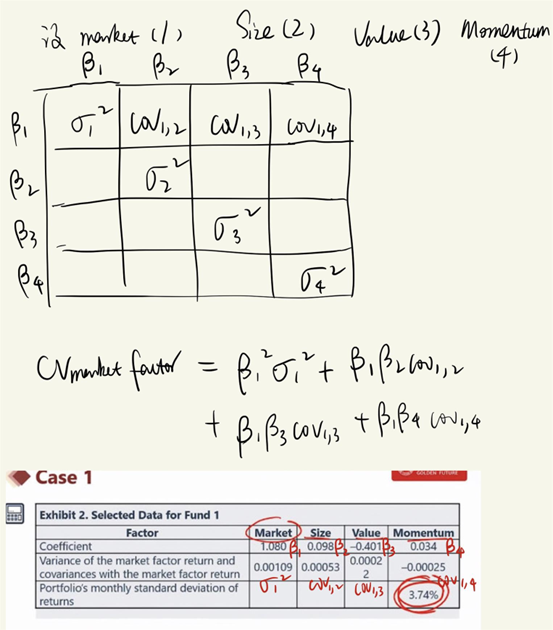 设 market (1) Size (2) Value (3) Momentum (4)
β₁ β₂ β₃ β₄
β₁ σ₁² cov₁,₂ cov₁,₃ cov₁,₄
β₂ σ₂²
β₃ σ₃²
β₄ σ₄²
CVmarket factor = β₁²σ₁² + β₁β₂cov₁,₂
+ β₁β₃cov₁,₃ + β₁β₄cov₁,₄
Case 1
GOLDEN FUTURE
Exhibit 2. Selected Data for Fund 1
Factor Market Size Value Momentum
Coefficient 1.080 β₁ 0.098 β₂ −0.401 β₃ 0.034 β₄
Variance of the market factor return and
covariances with the market factor return 0.00109 0.00053 0.00022 −0.00025
σ₁² cov₁,₂ cov₁,₃ cov₁,₄
Portfolio's monthly standard deviation of
returns 3.74%